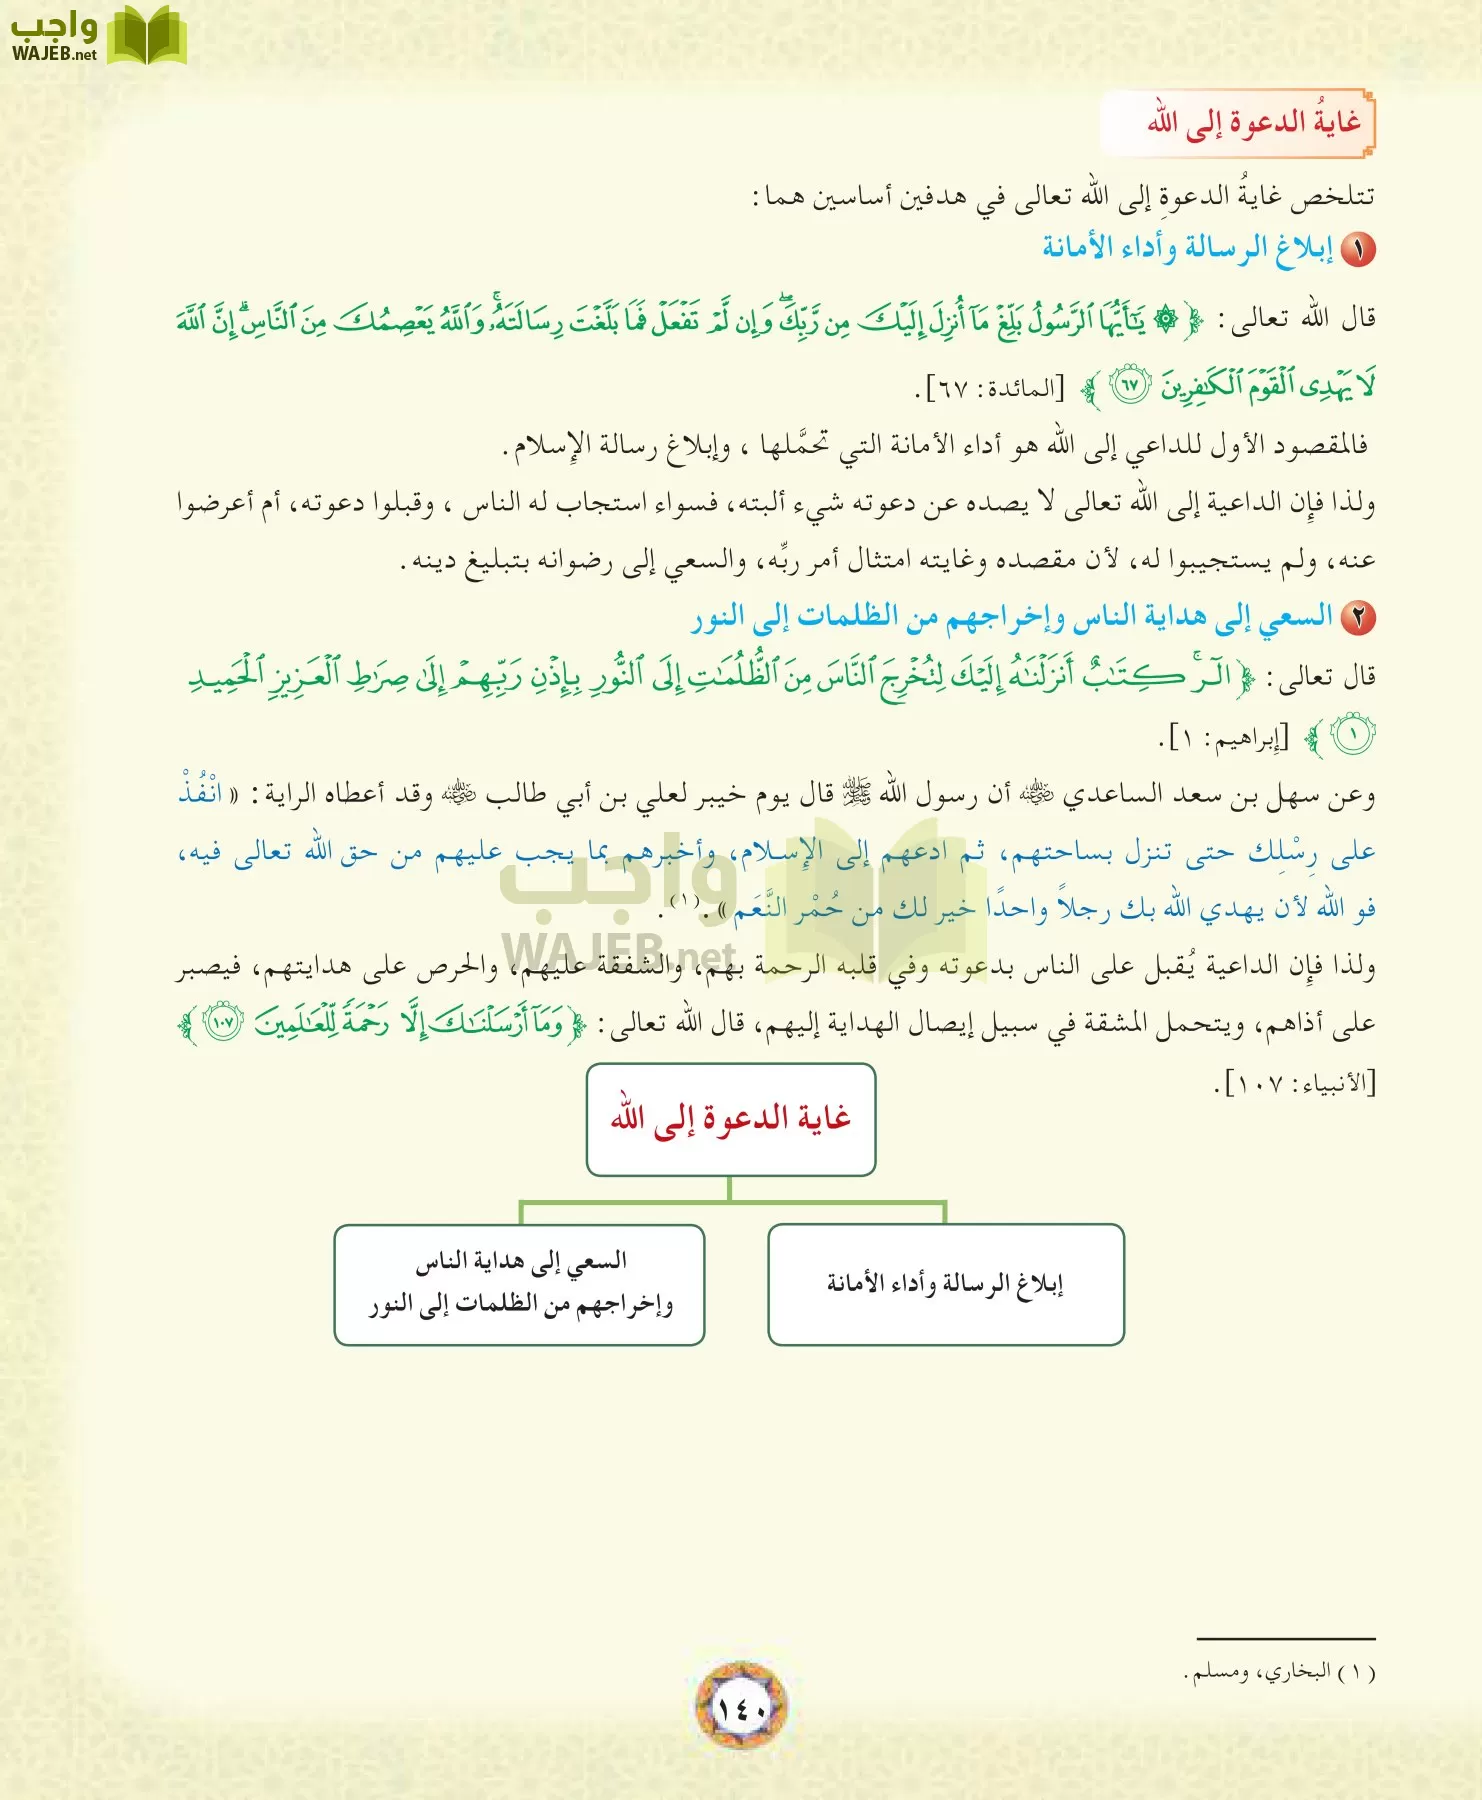 واجب
WAJEB.net
غايةُ الدعوة إلى الله
تتلخص غايةُ الدعوةِ إلى الله تعالى في هدفين أساسين هما:
١ إبلاغ الرسالة وأداء الأمانة
قال الله تعالى: ﴿ ۞ يَٰٓأَيُّهَا ٱلرَّسُولُ بَلِّغۡ مَآ أُنزِلَ إِلَيۡكَ مِن رَّبِّكَۖ وَإِن لَّمۡ تَفۡعَلۡ فَمَا بَلَّغۡتَ رِسَالَتَهُۥۚ وَٱللَّهُ يَعۡصِمُكَ مِنَ ٱلنَّاسِۗ إِنَّ ٱللَّهَ
لَا يَهۡدِي ٱلۡقَوۡمَ ٱلۡكَٰفِرِينَ ٦٧ ﴾ [المائدة: ٦٧].
فالمقصود الأول للداعي إلى الله هو أداء الأمانة التي تحمَّلها ، وإبلاغ رسالة الإسلام.
ولذا فإن الداعية إلى الله تعالى لا يصده عن دعوته شيء ألبته، فسواء استجاب له الناس ، وقبلوا دعوته، أم أعرضوا
عنه، ولم يستجيبوا له، لأن مقصده وغايته امتثال أمر ربِّه، والسعي إلى رضوانه بتبليغ دينه.
٢ السعي إلى هداية الناس وإخراجهم من الظلمات إلى النور
قال تعالى: ﴿ الٓرۚ كِتَٰبٌ أَنزَلۡنَٰهُ إِلَيۡكَ لِتُخۡرِجَ ٱلنَّاسَ مِنَ ٱلظُّلُمَٰتِ إِلَى ٱلنُّورِ بِإِذۡنِ رَبِّهِمۡ إِلَىٰ صِرَٰطِ ٱلۡعَزِيزِ ٱلۡحَمِيدِ
١ ﴾ [إبراهيم: ١].
وعن سهل بن سعد الساعدي رضي الله عنه أن رسول الله ﷺ قال يوم خيبر لعلي بن أبي طالب رضي الله عنه وقد أعطاه الراية: « انْفُذْ
على رِسْلِك حتى تنزل بساحتهم، ثم ادعهم إلى الإسلام، وأخبرهم بما يجب عليهم من حق الله تعالى فيه،
فو الله لأن يهدي الله بك رجلاً واحدًا خير لك من حُمْر النَّعَم».(١).
واجب
WAJEB.net
ولذا فإن الداعية يُقبل على الناس بدعوته وفي قلبه الرحمة بهم، والشفقة عليهم، والحرص على هدايتهم، فيصبر
على أذاهم، ويتحمل المشقة في سبيل إيصال الهداية إليهم، قال الله تعالى: ﴿ وَمَآ أَرۡسَلۡنَٰكَ إِلَّا رَحۡمَةٗ لِّلۡعَٰلَمِينَ ١٠٧ ﴾
[الأنبياء: ١٠٧].
غاية الدعوة إلى الله
إبلاغ الرسالة وأداء الأمانة
السعي إلى هداية الناس
وإخراجهم من الظلمات إلى النور
(١) البخاري، ومسلم.
١٤٠